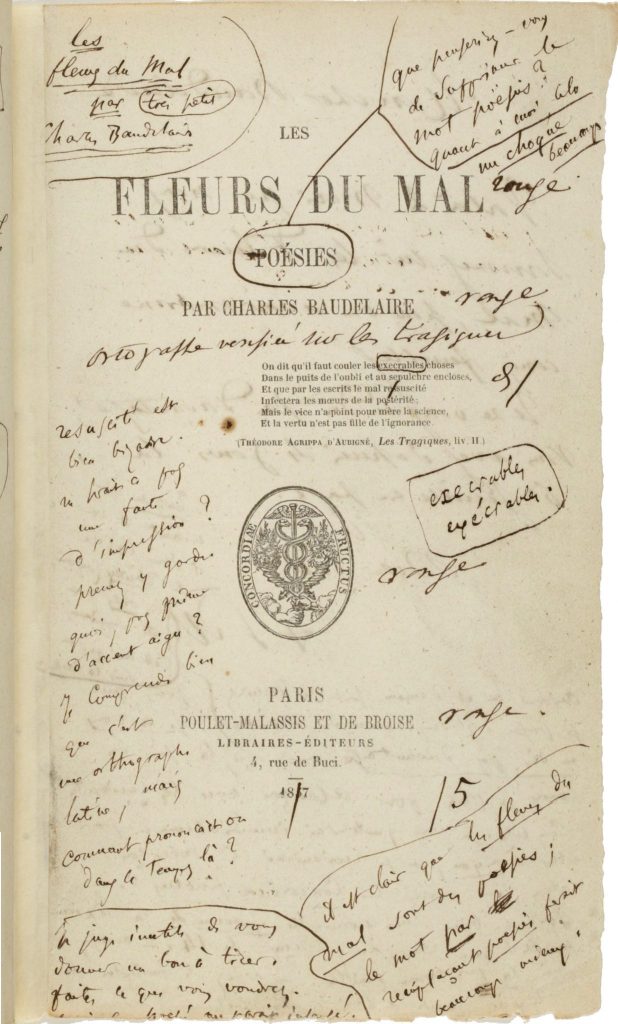 les
fleurs du Mal
par très petit
Charles Baudelaire
que penseriez-vous
de supprimer le
mot poësies?
quant à moi cela
me choque
beaucoup
LES
FLEURS DU MAL
rouge.
POÉSIES
PAR CHARLES BAUDELAIRE
rouge
ortografe vérifié sur les tragiques
On dit qu'il faut couler les execrables choses
Dans le puits de l'oubli et au sepulchre encloses,
Et que par les escrits le mal resuscité
Infectera les mœurs de la postérité;
Mais le vice n'a point pour mère la science,
Et la vertu n'est pas fille de l'ignorance.
(THÉODORE AGRIPPA D'AUBIGNÉ, Les Tragiques, liv. II)
resuscité est
bien bizarre.
n'y aurait-il pas
une faute
d'impression?
prenez y garde.
quoi, pas même
d'accent aigu?
Je comprends bien
que c'est
une orthographe
latine, mais
comment prononçait-on
dans le temps là?
execrables
exécrables.
CONCORDIÆ FRUCTUS
rouge
PARIS
POULET-MALASSIS ET DE BROISE
rouge.
LIBRAIRES-ÉDITEURS
4, rue de Buci.
1857
/5
Je juge inutile de vous
donner un bon à tirer.
faites ce que vous voudrez.
il est clair que les fleurs du
mal sont des poësies;
le mot par
remplaçant poësies ferait
beaucoup mieux.